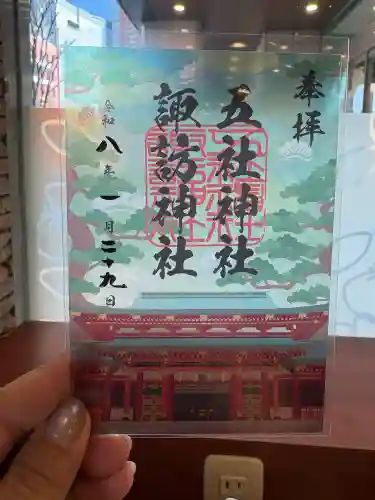 奉拝
五社神社
諏訪神社
令和八年一月二十九日